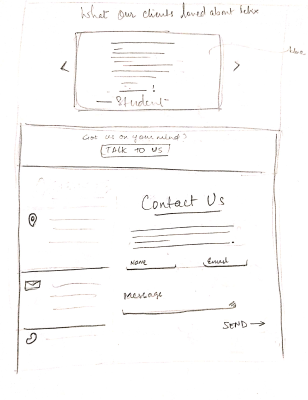 What our clients loved about
— Student
Got us on your mind?
TALK TO US
Contact Us
NAME Email
Message
SEND →